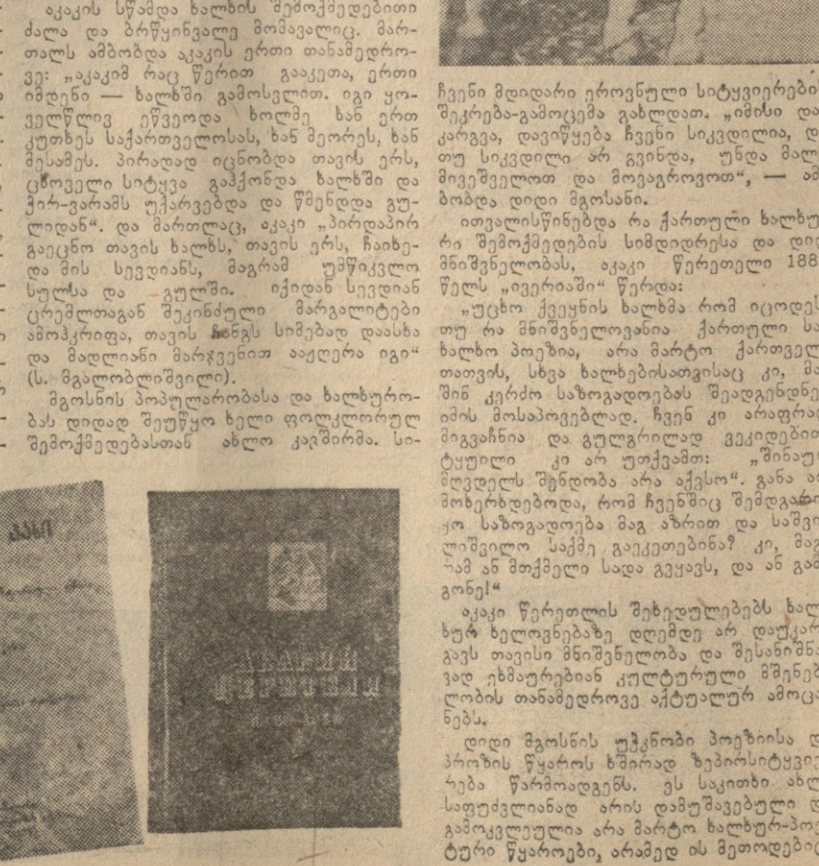 აკაკის სწამდა ხალხის შემოქმედებითი
ძალა და ბრწყინვალე მომავალიც. მარ-
თალს ამბობდა აკაკის ერთი თანამედრო-
ვე: „აკაკიმ რაც წერით გააკეთა, ერთი
იმდენი — ხალხში გამოსვლით. იგი ყო-
ველწლივ ეწვეოდა ხოლმე ხან ერთ
კუთხეს საქართველოსას, ხან მეორეს, ხან
მესამეს. პირადად იცნობდა თავის ერს,
ცხოველი სიტყვა გაჰქონდა ხალხში და
ჭირ-ვარამს უქარვებდა და წმენდდა გუ-
ლიდან“. და მართლაც, აკაკი „პირდაპირ
გაეცნო თავის ხალხს, თავის ერს, ჩაიხე-
და მის სევდიანს, მაგრამ უმწიკვლო
სულსა და გულში. იქიდან სევდიან
ცრემლთაგან შეკინძული მარგალიტები
ამოჰკრიფა, თავის ჩანგს სიმებად დაასხა
და მადლიანი მარჯვენით ააჟღერა იგი“
(ს. მგალობლიშვილი).
მგოსნის პოპულარობასა და ხალხურო-
ბას დიდად შეუწყო ხელი ფოლკლორულ
შემოქმედებასთან ახლო კავშირმა. სი-
ჩვენი მდიდარი ეროვნული სიტყვიერების
შეკრება-გამოცემა გახლდათ. „იმისი და-
კარგვა, დავიწყება ჩვენი სიკვდილია, და
თუ სიკვდილი არ გვინდა, უნდა მალე
მივეშველოთ და მოვაგროვოთ“, — ამ-
ბობდა დიდი მგოსანი.
ითვალისწინებდა რა ქართული ხალხუ-
რი შემოქმედების სიმდიდრესა და დიდ
მნიშვნელობას, აკაკი წერეთელი 188
წელს „ივერიაში“ წერდა:
„უცხო ქვეყნის ხალხმა რომ იცოდეს
თუ რა მნიშვნელოვანია ქართული სა-
ხალხო პოეზია, არა მარტო ქართველ
თათვის, სხვა ხალხებისათვისაც კი, მა-
შინ კერძო საზოგადოებას შეადგენდნენ
იმის მოსაპოვებლად. ჩვენ კი არაფრად
მიგვაჩნია და გულგრილად ვეკიდებით
ტყუილი კი არ უთქვამთ: „შინაურ
მღვდელს შენდობა არა აქვსო“. განა არ
მოხერხდებოდა, რომ ჩვენშიც შემდგარი-
ყო საზოგადოება მაგ აზრით და საშვი-
ლიშვილო საქმე გაეკეთებინა? კი, მაგ-
რამ ან მთქმელი სადა გვყავს, და ან გამ-
გონე!“
აკაკი წერეთლის შეხედულებებს ხალ-
ხურ ხელოვნებაზე დღემდე არ დაუკარ-
გავს თავისი მნიშვნელობა და შესანიშნა-
ვად ეხმაურებიან კულტურული მშენებ-
ლობის თანამედროვე აქტუალურ ამოცა-
ნებს.
დიდი მგოსნის უჭკნობი პოეზიისა დ
პროზის წყაროს ხშირად ზეპირსიტყვიე-
რება წარმოადგენს. ეს საკითხი ახლ
საფუძვლიანად არის დამუშავებული დ
გამოკვლეულია არა მარტო ხალხურ-პოე-
ტური წყაროები, არამედ ის მეთოდები